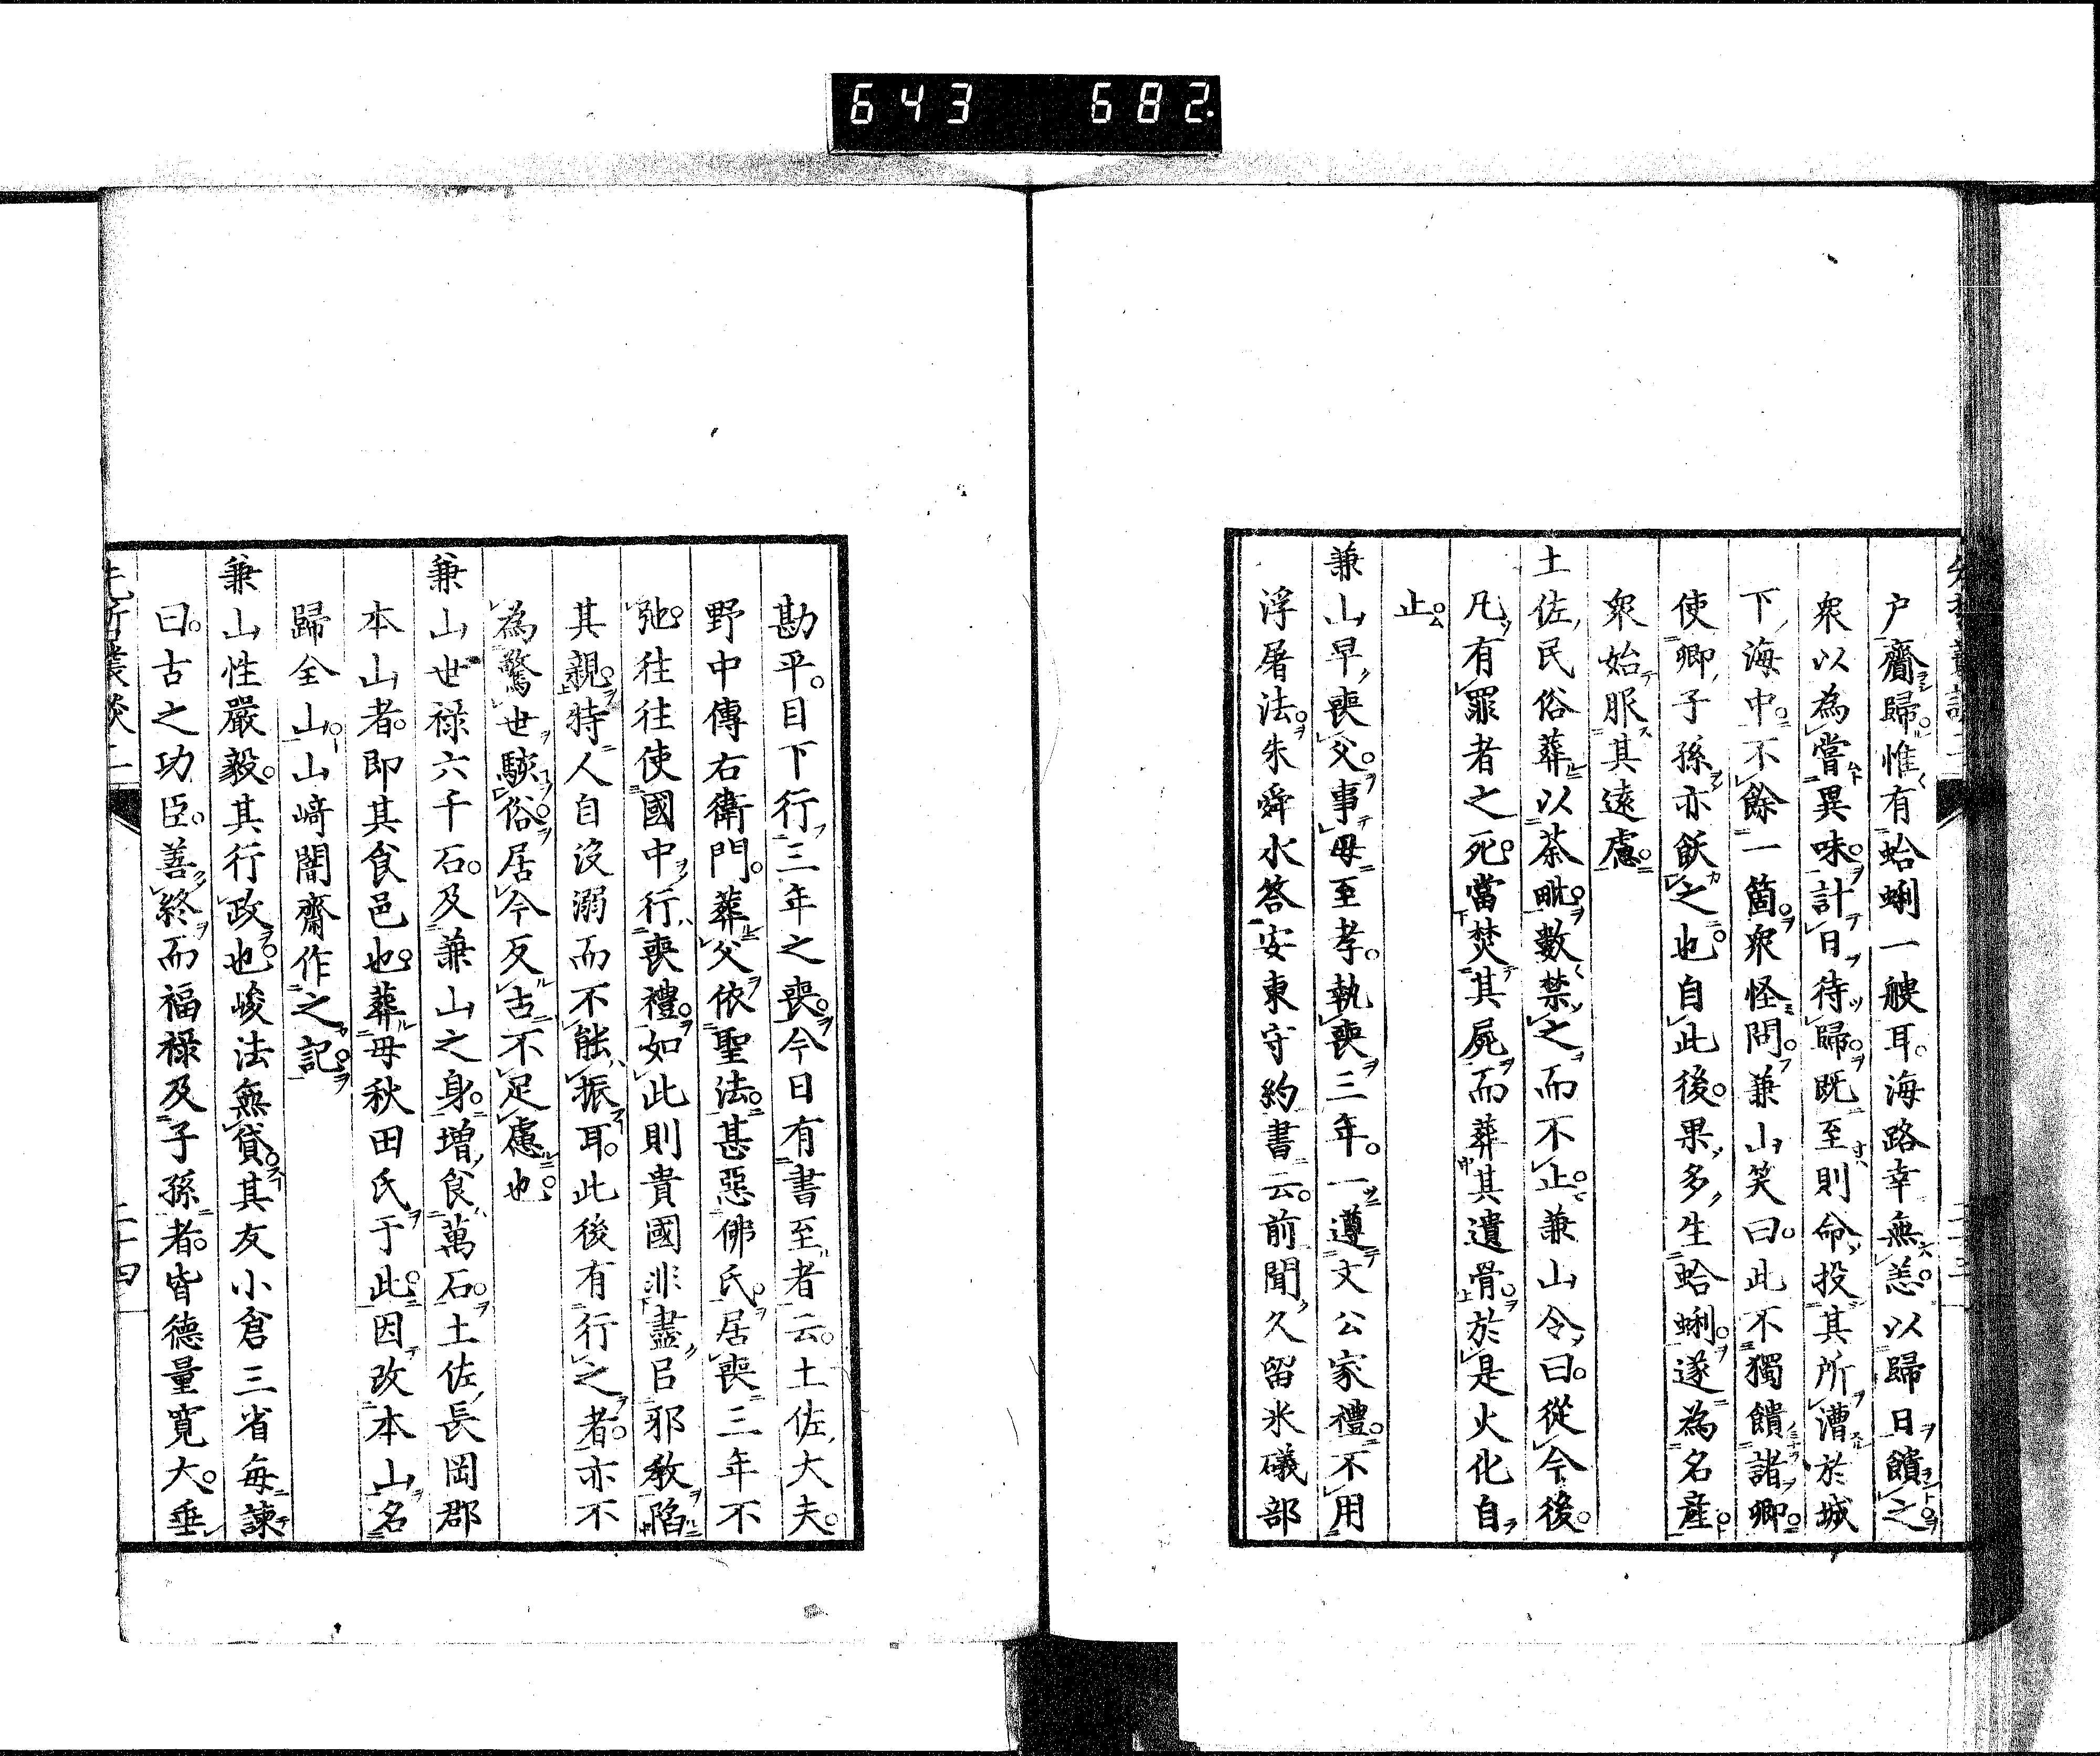 643 682.
戸齎歸。惟有蛤蜊一艘耳。海路幸無恙。以歸日饋之。
衆以為嘗異味。計日待歸。既至則命投其所漕於城
下海中。不餘一箇。衆怪問。兼山笑曰。此不獨饋諸卿。
使卿子孫亦飫之也。自此後。果多生蛤蜊。遂為名產。
衆始服其遠慮。
土佐民俗葬以荼毗。數禁之而不止。兼山令曰。從今後。
凡有罪者之死。當焚其屍而葬其遺骨於是火化自
止。
兼山早喪父。事母至孝。執喪三年。一遵文公家禮。不用
浮屠法。朱舜水答安東守約書云。前聞久留米礒部
勘平。目下行三年之喪。今日有書至者云。土佐大夫。
野中傳右衛門。葬父依聖法。甚惡佛氏。居喪三年不
弛。往往使國中行喪禮。如此則貴國非盡呂邪教陷
其親。特人自沒溺而不能振耳。此後有行之者。亦不
為驚世駭俗。居今反古不足慮也。
兼山世祿六千石。及兼山之身。增食萬石。土佐長岡郡
本山者。即其食邑也。葬母秋田氏于此。因改本山名
歸全山。山﨑闇齋作之記。
兼山性嚴毅。其行政也。峻法無貸。其友小倉三省每諫
曰。古之功臣。善終而福祿及子孫者。皆德量寬大。垂
二十四